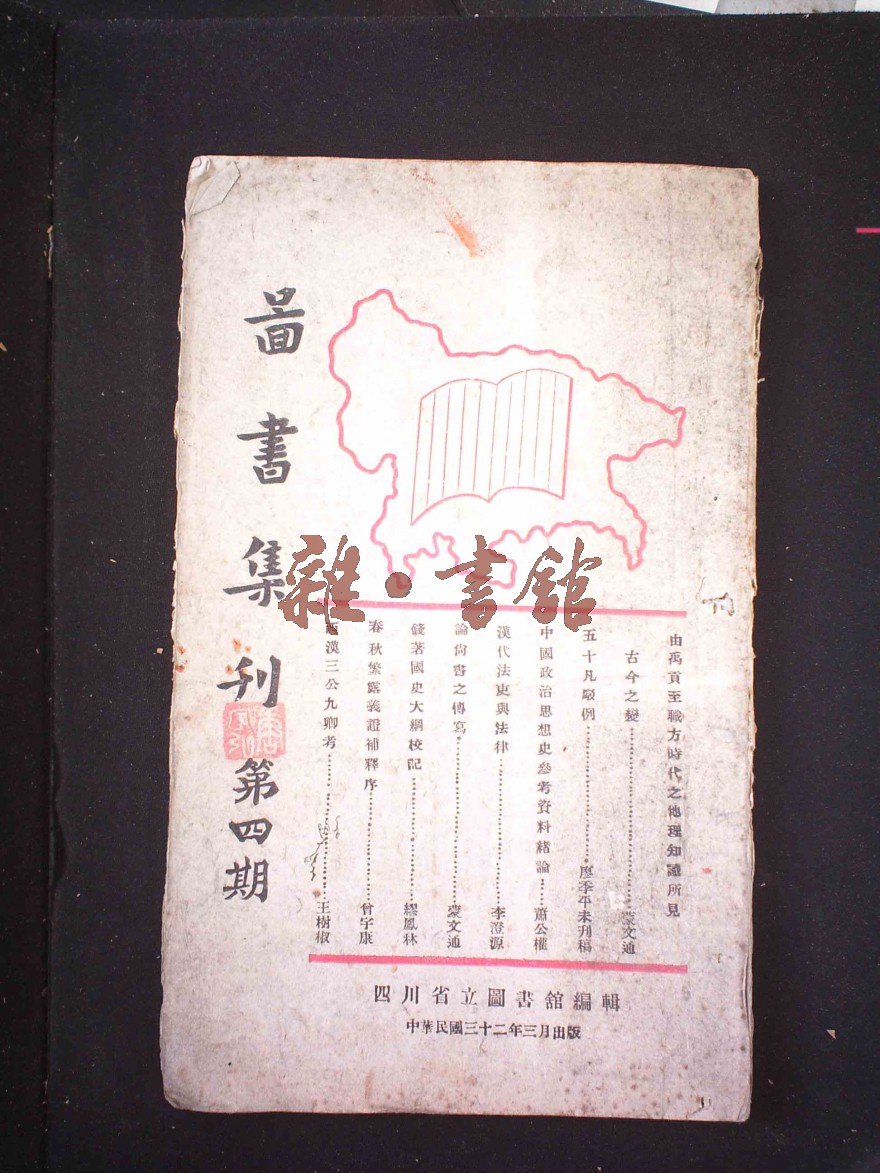 圖書集刊 第四期
由禹貢至職方時代之地理知識所見
古今之變……蒙文通
五十凡駁例……廖季平未刊稿
中國政治思想史參考資料緒論……蕭公權
漢代法吏與法律……李澄源
論尚書之傳寫……蒙文通
錢著國史大綱校記……繆鳳林
春秋繁露義證補釋序……曾宇康
漢三公九卿考……王樹椒
四川省立圖書館編輯
中華民國三十二年三月出版
雜·書館